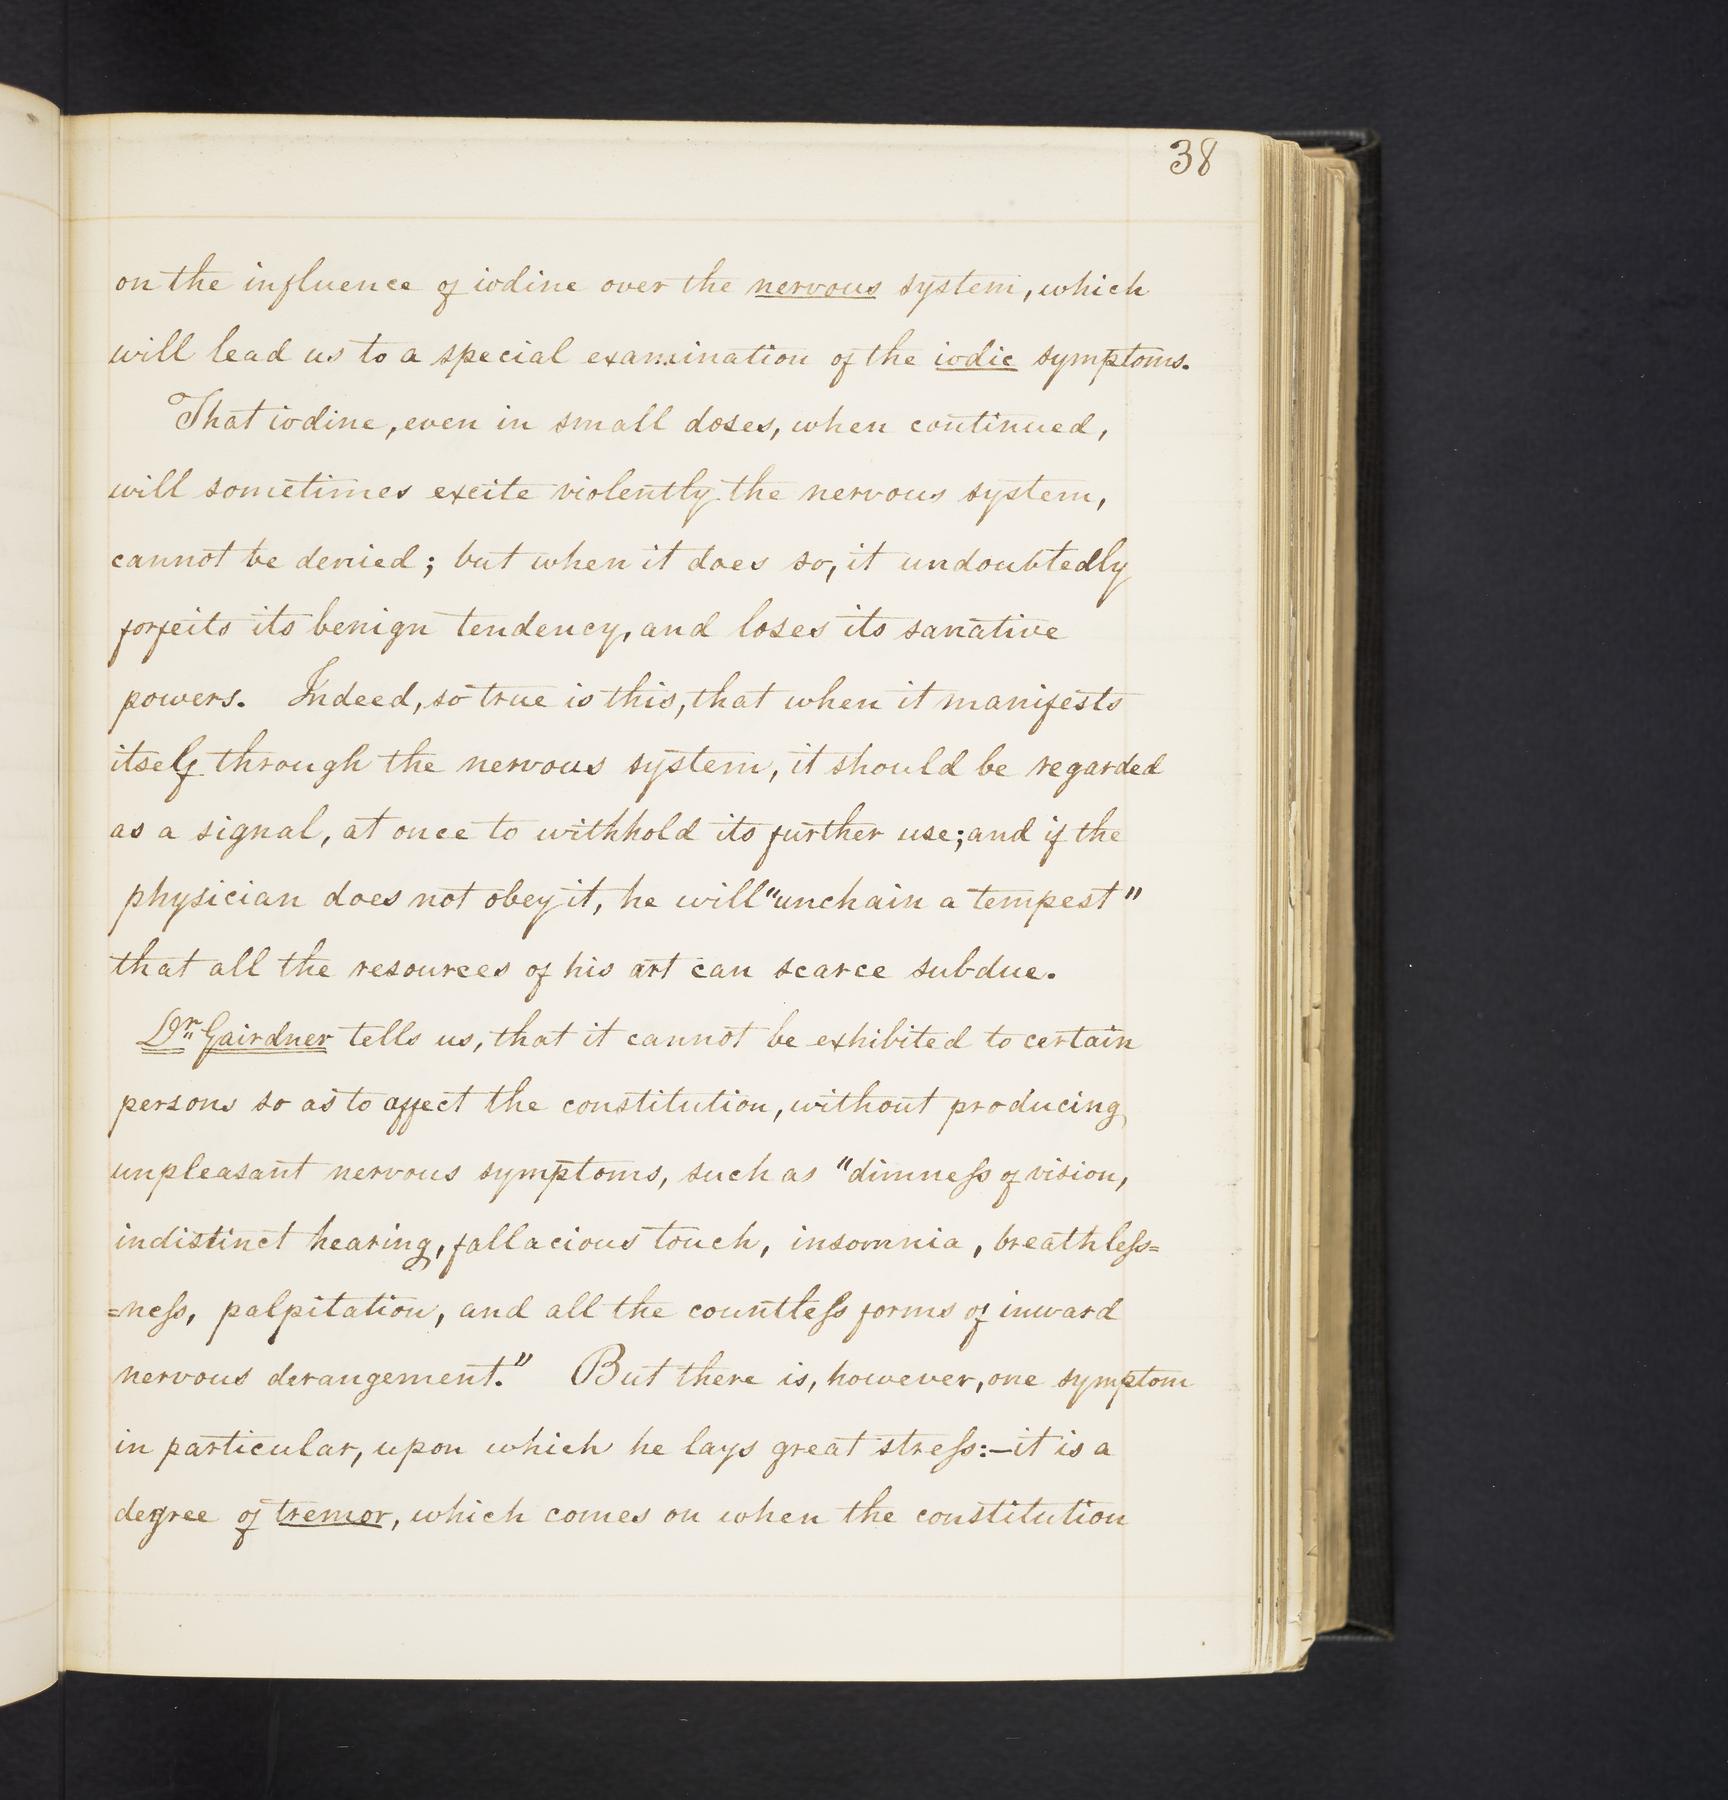 38
on the influence of iodine over the nervous system, which
will lead us to a special examination of the iodic symptoms.
That iodine, even in small doses, when continued,
will sometimes excite violently the nervous system,
cannot be denied; but when it does so, it undoubtedly
forfeits its benign tendency, and loses its sanative
powers. Indeed, so true is this, that when it manifests
itself through the nervous system, it should be regarded
as a signal, at once to withhold its further use; and if the
physician does not obey it, he will "unchain a tempest"
that all the resources of his art can scarce subdue.
Dr. Gairdner tells us, that it cannot be exhibited to certain
persons so as to affect the constitution, without producing
unpleasant nervous symptoms, such as "dimneſs of vision,
indistinct hearing, fallacious touch, insomnia, breathleſs=
=neſs, palpitation, and all the countleſs forms of inward
nervous derangement." But there is, however, one symptom
in particular, upon which he lays great streſs:—it is a
degree of tremor, which comes on when the constitution